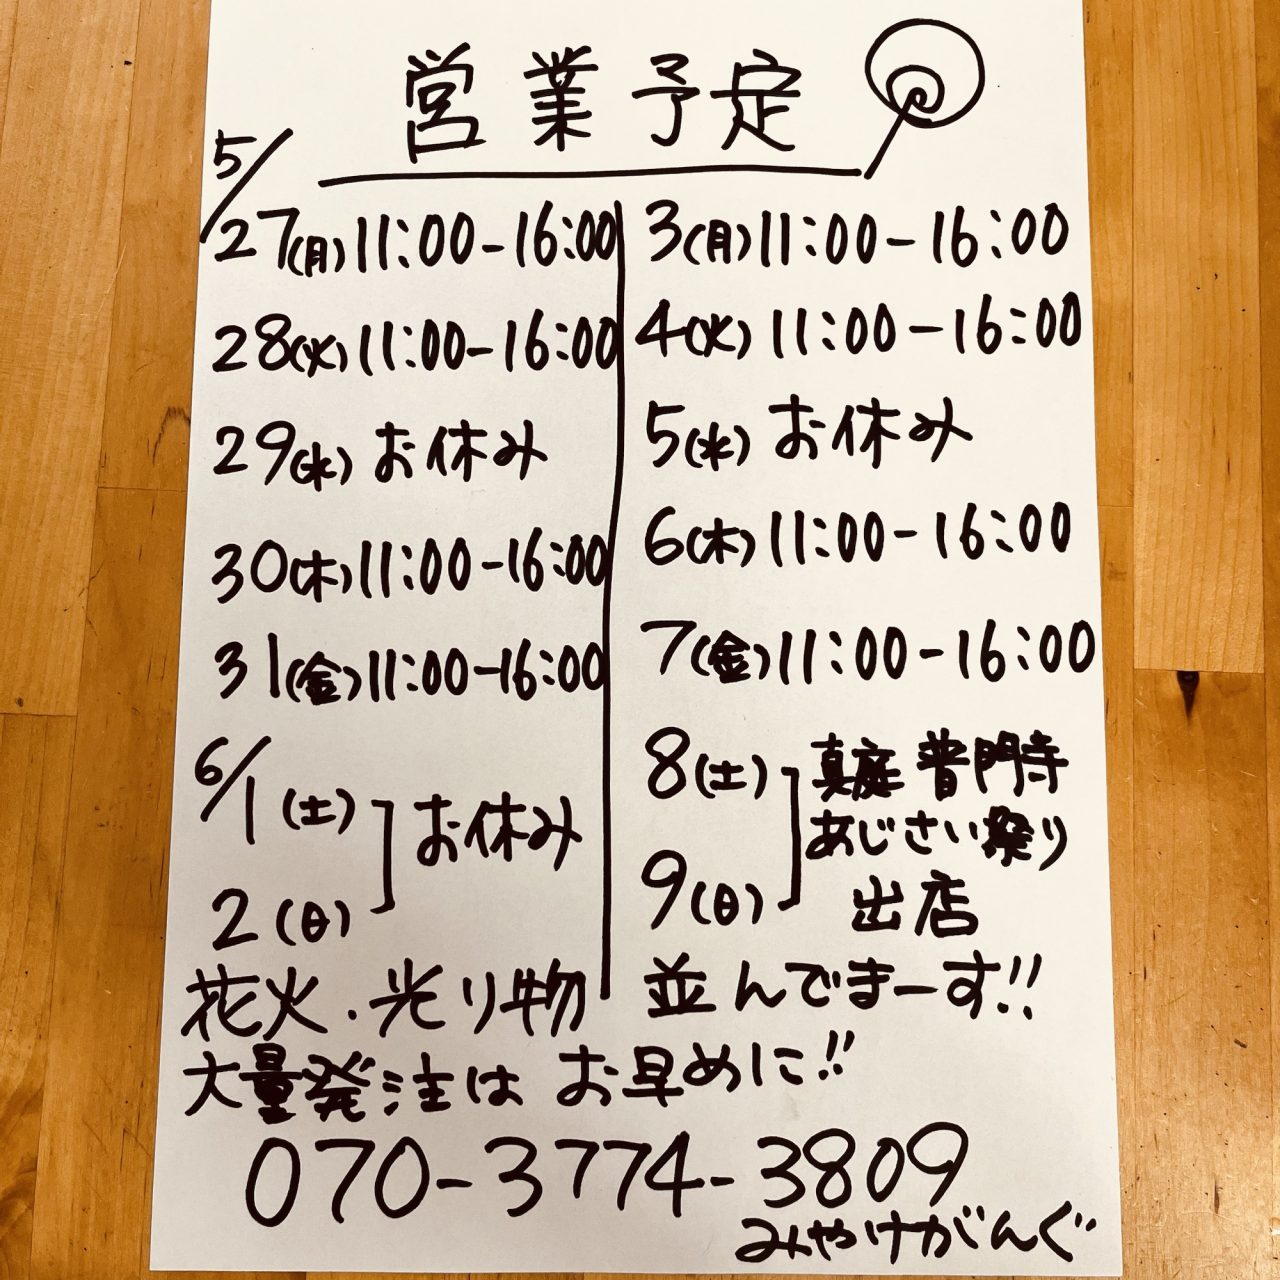 営業予定
5/
27(月)11:00-16:00
28(火)11:00-16:00
29(水)お休み
30(木)11:00-16:00
31(金)11:00-16:00
6/1(土)
2(日)
お休み
3(月)11:00-16:00
4(火)11:00-16:00
5(水)お休み
6(木)11:00-16:00
7(金)11:00-16:00
8(土)
9(日)
真庭普門寺
あじさい祭り
出店
花火.光り物 並んでまーす!!
大量発注はお早めに!!
070-3774-3809
みやけがんぐ